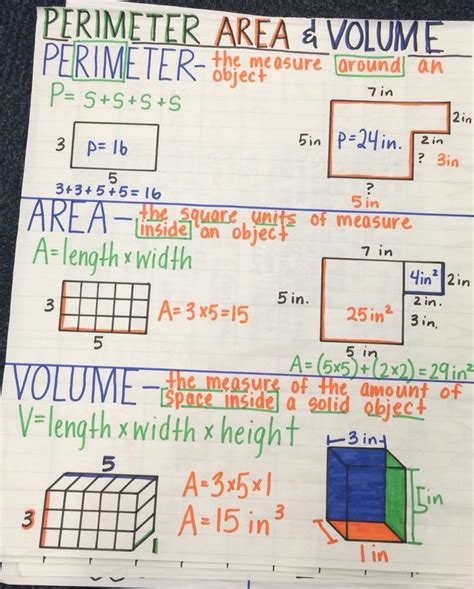 PERIMETER AREA & VOLUME
PERIMETER- the measure around an
object
P= S+S+S+S
7 in
2in
3
P= 16
5in
P=24in.
2 in
? 3in
5
?
3+3+5+5=16
5in
AREA- the square units of measure
inside an object
A=length x width
7 in
4in²
2in
3
A= 3x5=15
5in.
25in²
2in.
3in.
5
5 in
A=(5x5)+(2x2)=29in²
VOLUME- the measure of the amount of
space inside a solid object
V=length x width x height
3in
5
A=3x5x1
3
A=15 in³
5in
1
1in